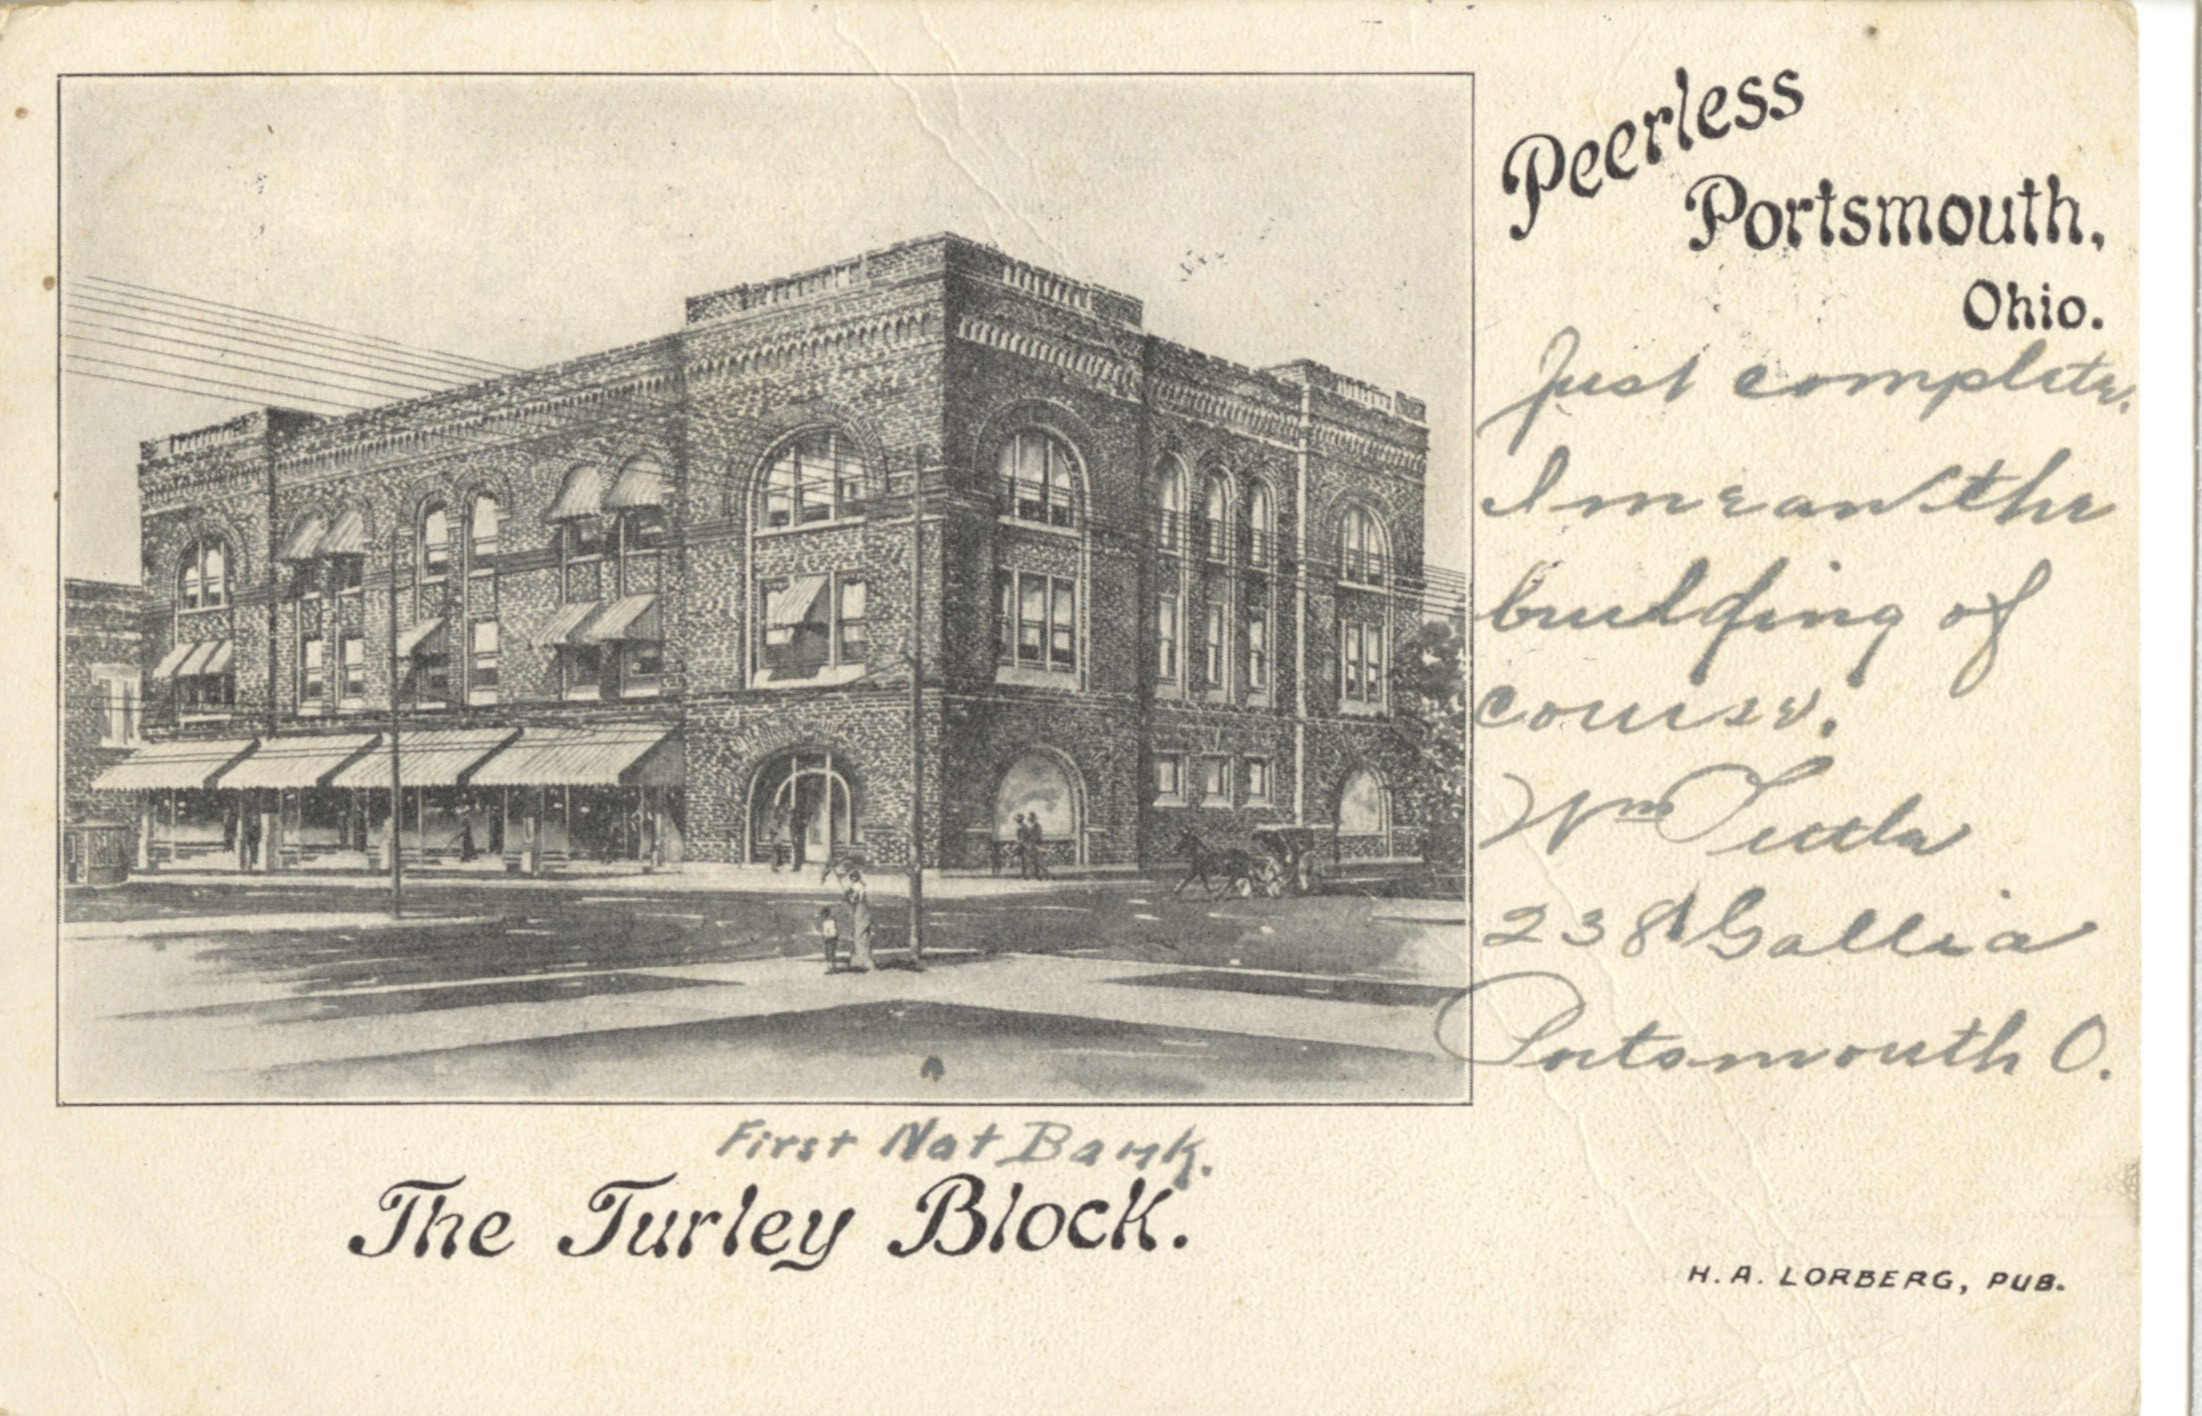 Peerless
Portsmouth,
Ohio.
Just complete.
I mean the
building of
course.
Wm Tuttle
238 Gallia
Portsmouth O.
First Nat Bank.
The Turley Block.
H. A. LORBERG, PUB.